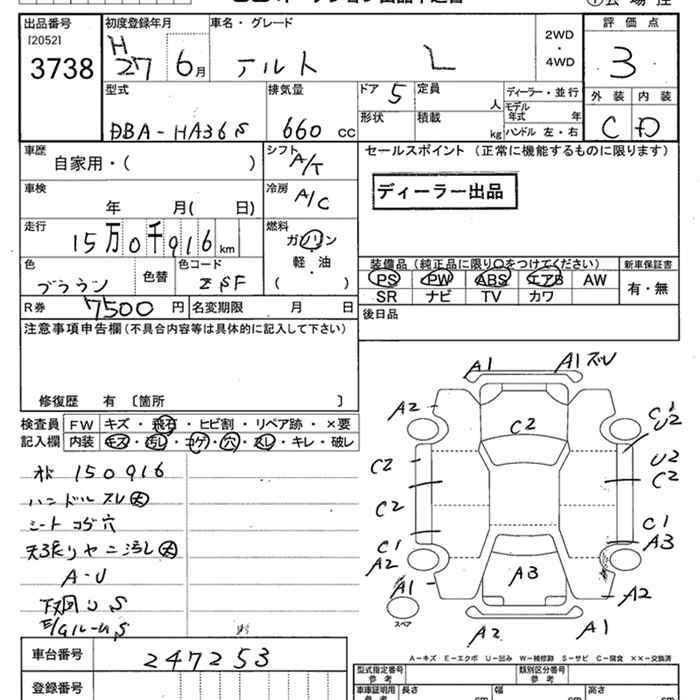 出品番号 初度登録年月 車名・グレード 2WD ・ 4WD 評価点
[2052]
3738 H27 6月 アルト L 3
型式 排気量 ドア 5 定員 人 ディーラー・並行 外装 内装
DBA-HA36S 660cc 形状 積載 kg モデル年式 年 C D
ハンドル 左・右
車歴 自家用・( ) シフト A/T セールスポイント (正常に機能するものに限ります)
車検 年 月( 日) 冷房 A/C ディーラー出品
走行 15万0千916km 燃料 ガソリン
軽・油
( )
色 ブラウン 色替 色コード ZSF 装備品 (純正品に限り○をつけてください) 新車保証書
PS PW ABS エアB AW 有・無
SR ナビ TV カワ
R券 7500円 名変期限 月 日 後日品
注意事項申告欄(不具合内容等は具体的に記入して下さい)
修復歴 有 〔箇所 〕
検査員 FW キズ・飛石・ヒビ割・リペア跡・×要
記入欄 内装 キズ・汚レ・コゲ・穴・スレ・キレ・破レ
150916
ハンドルスレ大
シートコゲ穴
天張りヤニ汚レ大
A-U
下廻りS
E/GルームS
A1 A1 ズレ
A2 C1
U2
C2
C2 U2
C2
C2 C1
A3
C1
A2
A3
A1 A2
スペア
A2 A1
A-キズ E-エクボ U-凹み W-補修跡 S-サビ C-腐食 ××-交換済
車台番号 247253
登録番号
型式指定番号 参考 類別区分番号 参考
車庫証明用 参考 長さ cm 幅 cm 高さ cm